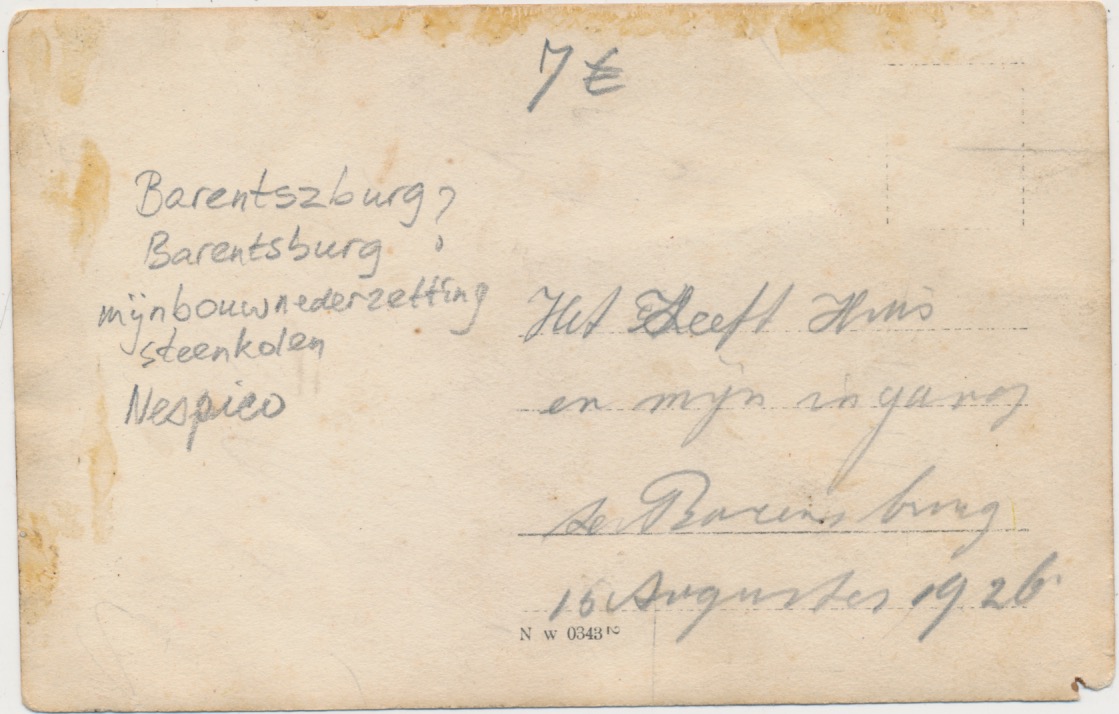 7 €
Barentszburg?
Barentsburg
mijnbouwnederzetting
steenkolen
Nespico
Het Heeft Huis
en mijn ingang
te Barens burg
16 Augustus 1926
N W 0343